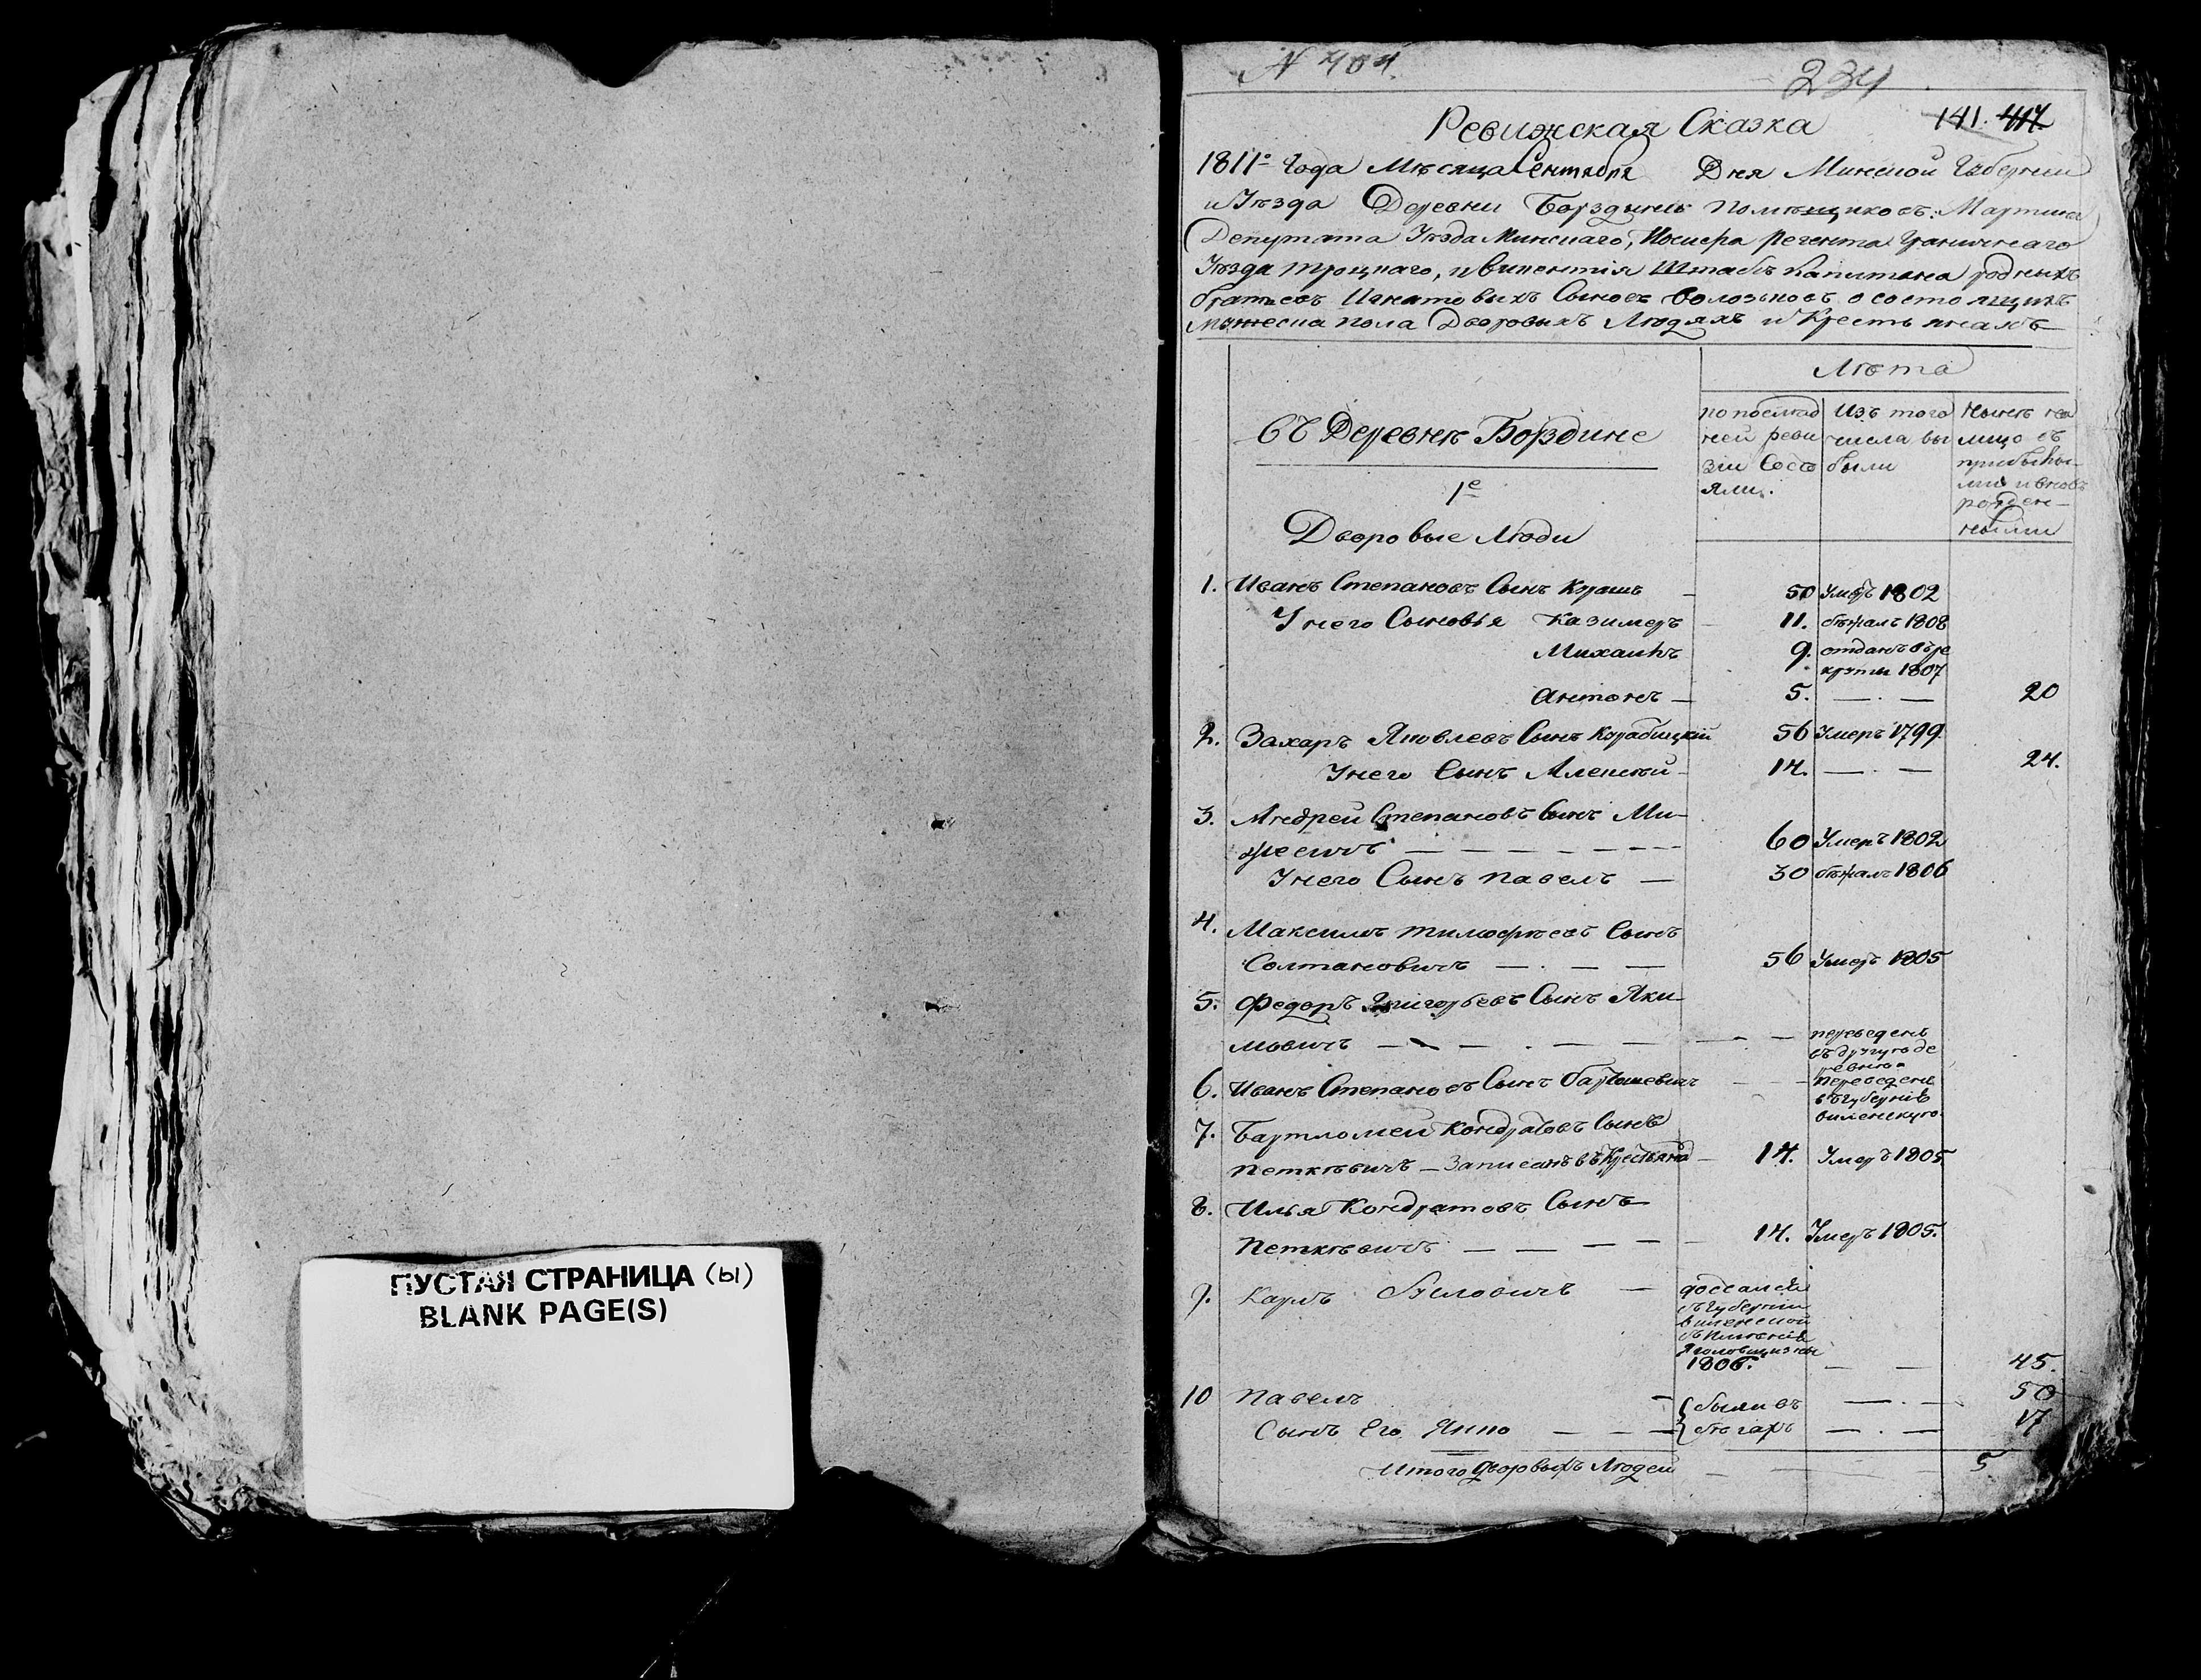 ПУСТАЯ СТРАНИЦА (ы)
BLANK PAGE(S)
N 704.
234
141. 417.
Ревижская Сказка
1811º Года Мѣсяца Сентября Дня Минской Губернии
и Уѣзда Деревни Борздынь помѣщиковъ: Мартина
Депутата Уѣзда Минскаго, Иосифа Регента Граничнаго
Уѣзда Троцкаго, и Викентія Штабъ Капитана родныхъ
братьевъ Игнатовыхъ Сыновъ Волозьковъ о состоящихъ
мужеска пола Дворовыхъ Людяхъ и Крестьянахъ
Лѣта
въ Деревнѣ Борздине
по послѣд
ней реви
зіи состо
яли.
Изъ того
числа вы
были
Нынѣ на
лицо съ
прибылы-
ми и вновь
рожден-
ными
1е
Дворовые Люди
1. Иванъ Степановъ Сынъ Курашъ 50 Умеръ 1802
У него Сыновья Казимеръ 11. бѣжалъ 1808
Михаилъ 9. отданъ въ ре
круты 1807
Антонъ — 5. — . — 20
2. Захаръ Яковлевъ Сынъ Корабицкій 56 Умеръ 1799
У него Сынъ Алексѣй 14. — . — 24.
3. Андрей Степановъ Сынъ Ми-
60 Умеръ 1802
У него Сынъ Павелъ — 30 бѣжалъ 1806
4. Максимъ Тимофѣевъ Сынъ
Солтановичъ — . — — 56 Умеръ 1805
5. Федоръ Григорьевъ Сынъ Яки-
мовичъ — — — . — — — — переведенъ
въ другую де
ревню
6. Иванъ Степановъ Сынъ Бартошевичъ — — переведенъ
въ губернію
виленскую
7. Бартломей Кондратовъ Сынъ
Петкѣвичъ — Записанъ въ Крестьяна — 14. Умеръ 1805
8. Илья Кондратовъ Сынъ
Петкѣвичъ — — — — — 14. Умеръ 1805.
9. Карлъ —
достался
въ Губерніи
виленской
въ Имѣніи
1806. — — 45.
10 Павелъ — { были въ — . — 50
Сынъ Его Янко — — — { бѣгахъ — . — 17
Итого дворовыхъ Людей — — — 5